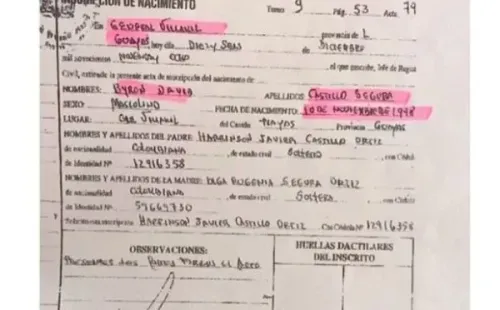 INSCRIPCION DE NACIMIENTO Tomo 9 Pág. 53 Acta 79
En GENERAL VILLAMIL provincia de
GUAYAS hoy día DIEZ y SEIS de DICIEMBRE
mil novecientos NOVENTA y OCHO El que suscribe, Jefe de Registro
Civil, extiende la presente acta de inscripción del nacimiento de
NOMBRES: BYRON DAVID APELLIDOS: CASTILLO SEGURA
SEXO MASCULINO FECHA DE NACIMIENTO: 10 DE NOVIEMBRE 1998
LUGAR: GRAL VILLAMIL del Cantón PLAYAS Provincia GUAYAS
NOMBRES Y APELLIDOS DEL PADRE HARRINSON JAVIER CASTILLO ORTIZ
de nacionalidad COLOMBIANA de estado civil SOLTERO con Cédula
de Identidad Nº 12916358
NOMBRES Y APELLIDOS DE LA MADRE: EUGENIA SEGURA ORTIZ
de nacionalidad COLOMBIANA de estado civil SOLTERA con Cédula
de Identidad Nº 59669730
Solicita esta inscripción HARRINSON JAVIER CASTILLO ORTIZ Con Cédula Nº 12916358
OBSERVACIONES:
HUELLAS DACTILARES
DEL INSCRITO
PRESENTES LOS PADRES FIRMAN EL ACTA